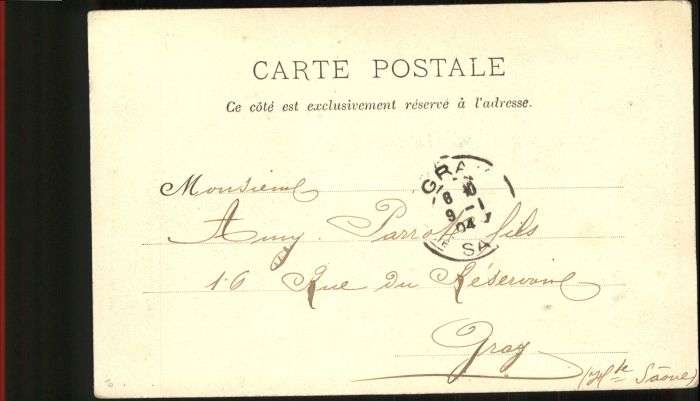 CARTE POSTALE
Ce côté est exclusivement réservé à l'adresse.
GRAY
9-1
04
SA
Monsieur
Amy. Parrot fils
16 Rue du Réservoir
Gray
(Hte Saône)